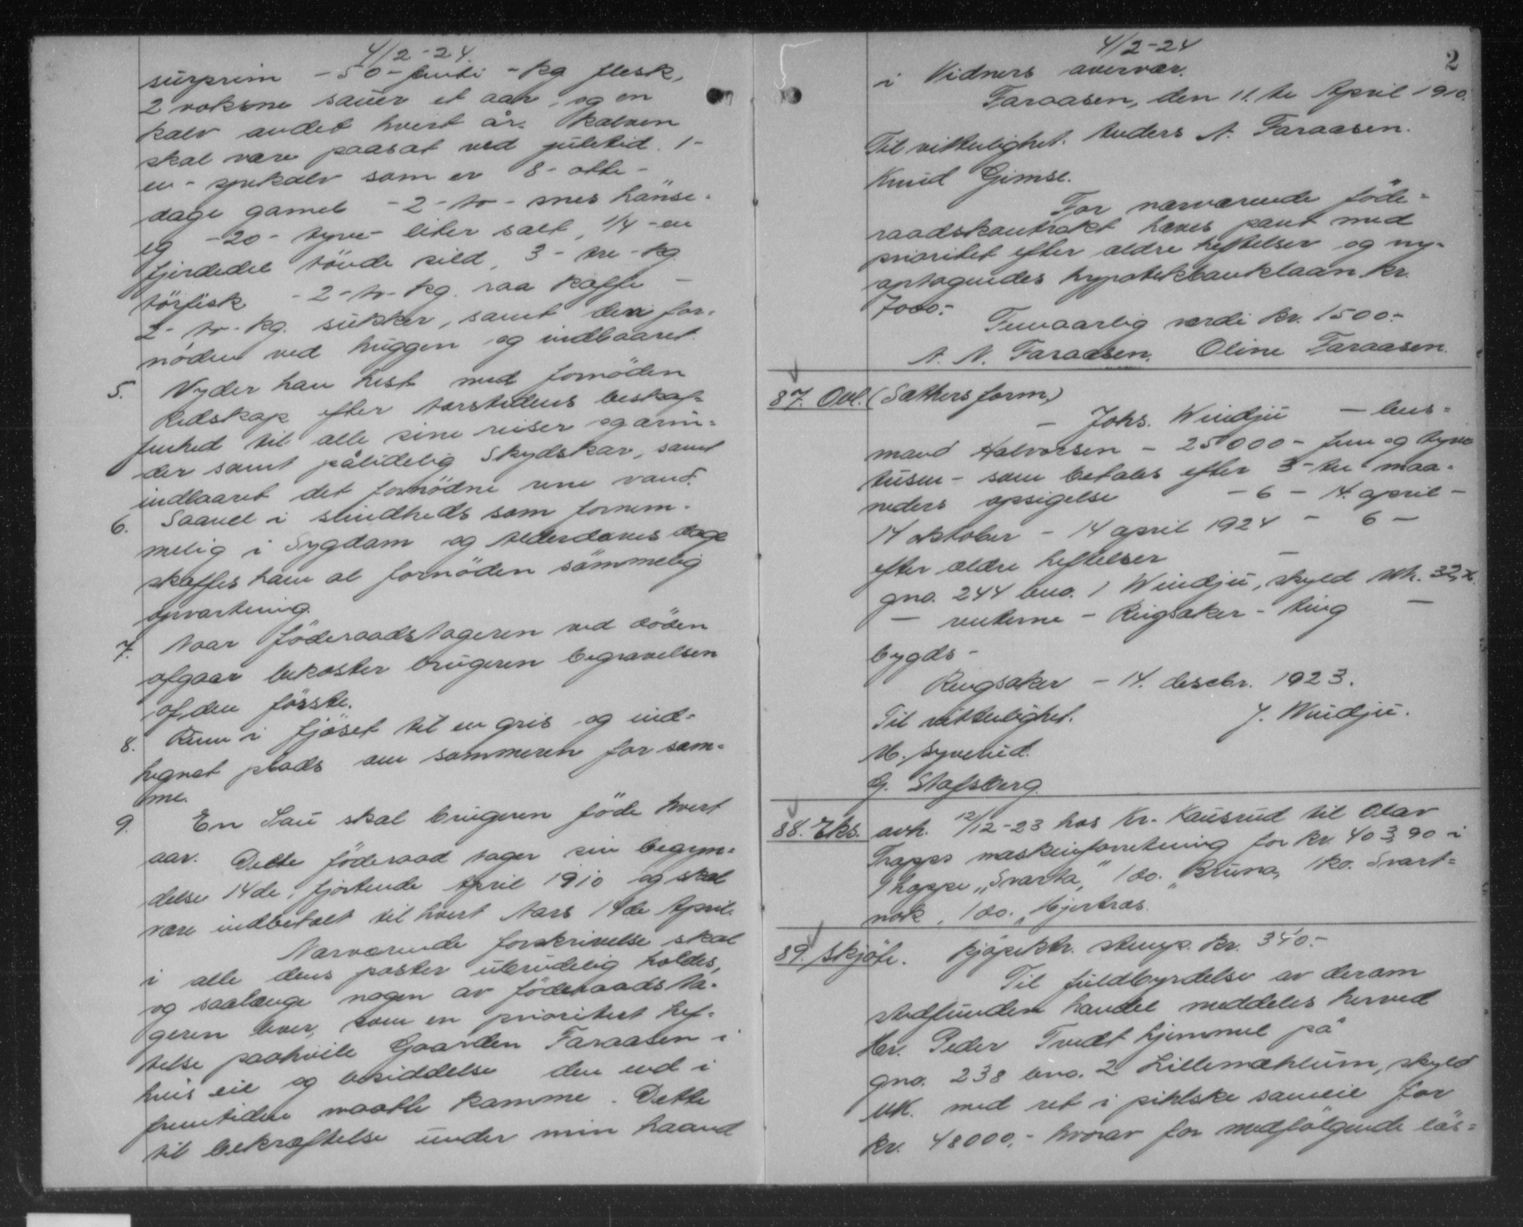 4/2-24.
surprim - 50 - femti - kg flesk,
2 voksne sauer et aar, og en
kalv andet hvert år. Kalven
skal være paasat ved juletid. 1-
en - spekalv som er 8 - otte -
dage gamel - 2 - to - snes hönse-
eg - 20 - tyve - liter salt, 1/4 - en
fjerdedel tönde sild, 3 - tre - kg
törfisk - 2 - to - kg. raa kaffe -
2 - to - kg. sukker, samt den for-
nöden ved huggen og indbaaret.
5. Nyder han hest med fornöden
Redskap efter aarstidens beskaf-
fenhed til alle sine reiser og ærin-
der samt pålidelig Skydskar, samt
indbaaret det fornödne rene vand.
6. Saavel i sundheds som fornem-
melig i Sygdom og Alderdoms dage
skaffes ham al fornöden sömmelig
opvartning.
7. Naar föderaadstageren ved döden
afgaar bekoster brugeren begravelsen
af den förste.
8. Rum i fjöset til en gris og ind-
hegnet plads om sommeren for sam-
me.
9. En Sau skal brugeren föde hvert
aar. Dette föderaad tager sin begyn-
delse 14de, fjortende April 1910 og skal
være indbetalt til hvert Aars 14de April.
Nærværende forskrivelse skal
i alle dens poster ubrudelig holdes,
og saalænge nogen av föderaadsta-
geren lever, som en prioritert hef-
telse paahvile Gaarden Faraasen i
hvis eie og besiddelse den end i
fremtiden maatte komme. Dette
til bekræftelse under min haand
4/2-24
2
i Vidners overvær.
Faraasen, den 11.te April 1910.
Til vitterlighet. Anders N. Faraasen.
Knud Gimse.
For nærværende föde-
raadskontrakt haves pant med
prioritet efter ældre heftelser og ny-
optagendes hypotekbanklaan kr.
7000.-
Femaarlig værdi kr. 1500.-
A. N. Faraasen. Oline Faraasen.
87. Obl. (Sathers form)
- Johs. Windju - lens-
mand Halvorsen - 25000 - fem og tyve
tusen - som betales efter 3 - tre maa-
neders opsigelse - 6 - 14 april -
14 oktober - 14 april 1924 - 6 -
efter ældre heftelser -
gno. 244 bno. 1 Windju, skyld Mk. 32,
- renterne - Ringsaker - ting -
bygds -
Ringsaker - 14. desebr. 1923.
Til vitterlighet. J. Windju.
M. Syverud.
G. Stafsberg.
88. Eks. avh. 12/12-23 hos Kr. Kausrud til Olav
Trapps maskinforretning for kr 403,90 i
1 hoppe "Svarta", 1 do. "Bruna, 1 ko. Svart-
nok, 1 do. Hjertros.
89. Skjöte. Kjöpektr. stemp. kr. 340.-
Til fuldbyrdelse av derom
stedfunden handel meddeles herved
Hr. Peder Tvedt hjemmel på
gno. 238 bno. 2 Lillemæhlum, skyld
Mk. med ret i pihlske sameie for
kr. 48000,- hvorav for medfölgende lös-